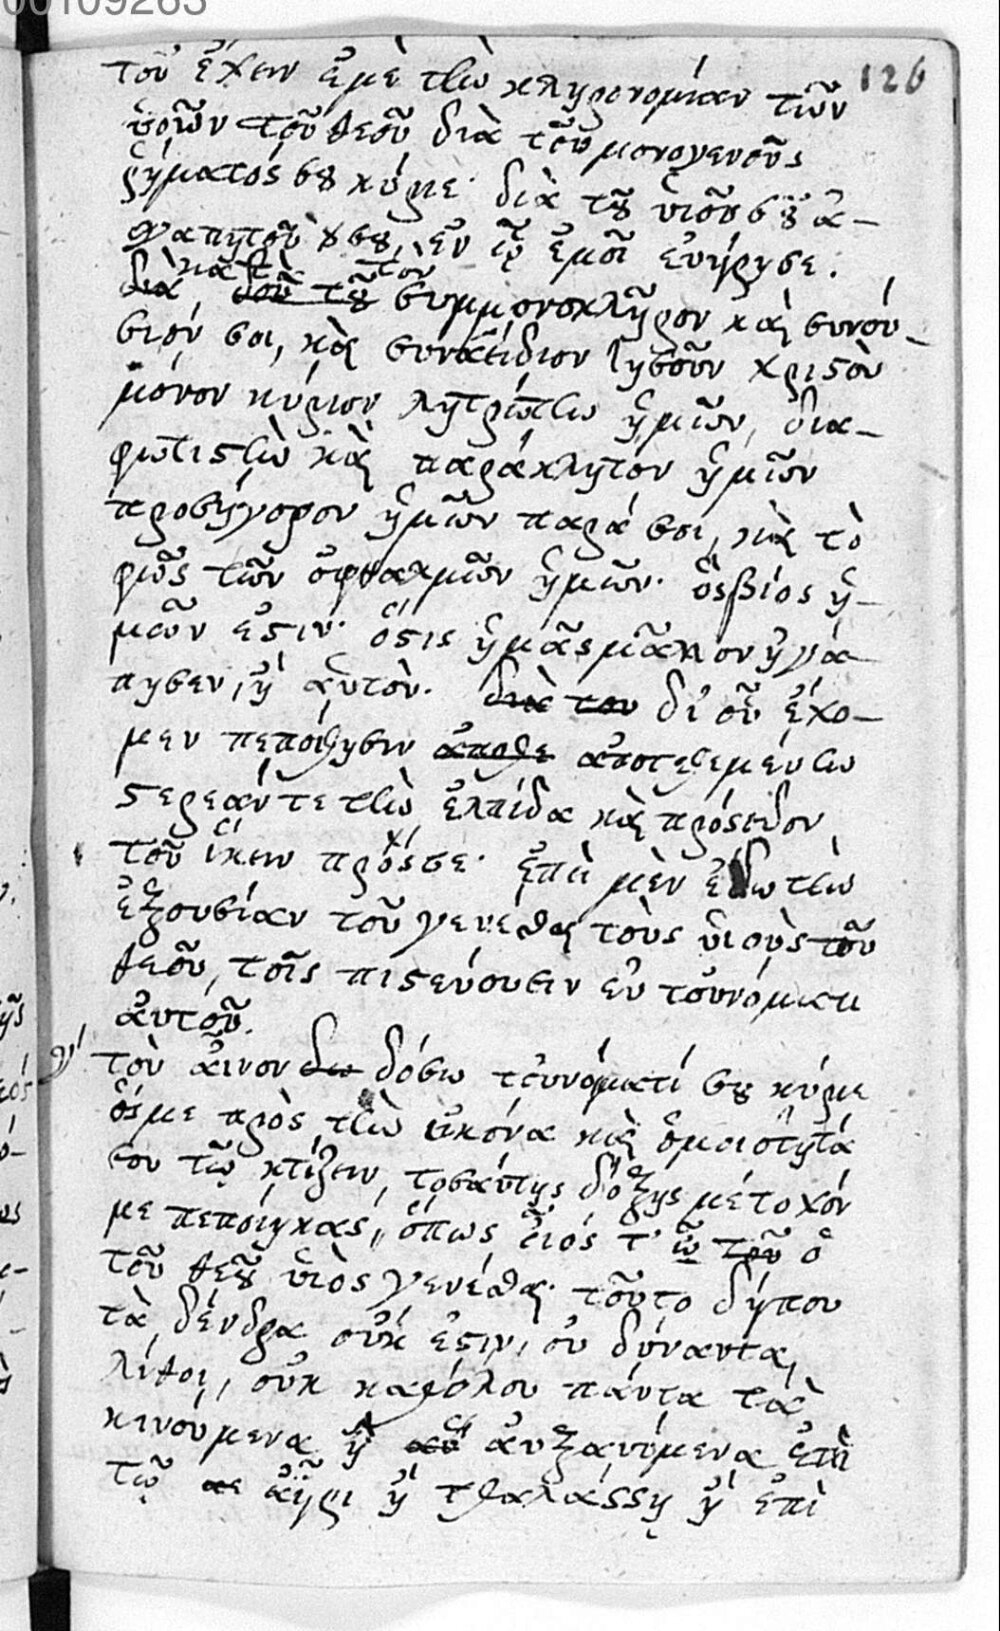 00109263
126
τοῦ ἔχειν ἐμὲ τὴν κληρονομίαν τῶν
ὑιῶν τοῦ θεοῦ διὰ τοῦ μονογενοῦς
ῥήματός σου κύριε· διὰ τοῦ ὑιοῦ σοῦ ἀ-
γαπητοῦ σου, ἐν ᾧ ἐμοὶ
διὰ κατὰ τοῦ τοῦ τὸν συμμονοκλῆρον καὶ συνού-
σιόν σοι, καὶ συναΐδιον Ἰησοῦν χριστὸν
μόνον κύριον λυτρώτην ἡμῶν, δια-
φωτιστὴν καὶ παράκλητον ἡμῶν
προσήγορον ἡμῶν παρά σοι, καὶ τὸ
φῶς τῶν ὀφθαλμῶν ἡμῶν· ὃς βίος ἡ-
μῶν ἐστιν· ὅστις ἡμᾶς μᾶλλον ἠγά-
πησεν, ἢ ἁυτὸν. διὰ του δι' οὗ ἔχο-
μεν πεποίθησιν ἀποτετεμένην
στερεάν τε τὴν ἐλπίδα καὶ πρόσοδον
τοῦ ἵκειν πρός σε· ἐπεὶ μὲν ἔδω τὴν
ἐξουσίαν τοῦ γενέσθαι τοὺς ὑιοὺς τοῦ
θεοῦ, τοῖς πιστεύουσιν ἐν τοὐνόματι
ἀυτοῦ.
γ' τὸν ἆινον δω δόσω τοὐνόματί σου κύριε
ὅς με πρὸς τὴν ἐικόνα καὶ ὁμοιότητά
σου τῷ κτίζειν, τοσάυτης δόξης μέτοχόν
με πεποίηκας, ὅπως οἷός τ' ὦ τοῦ ὁ
τοῦ θεοῦ ὑιὸς γενέσθαι· τοῦτο δήπου
τὰ δένδρα οὐκ ἐστιν, οὐ δύνανται
λίθοι, οὐκ καθόλου πάντα τὰ
κινούμενα ἢ αὐ ἀυξανόμενα ἐπὶ
τῷ αε ἀῆρι ἢ τθαλάσσῃ ἢ ἐπὶ